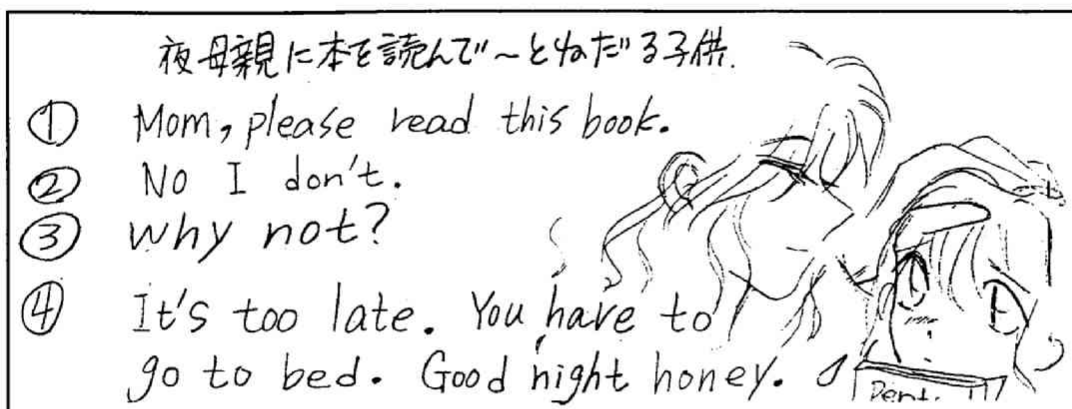 夜母親に本を読んで〜とねだる子供.
① Mom, please read this book.
② No I don't.
③ why not?
④ It's too late. You have to
go to bed. Good night honey.